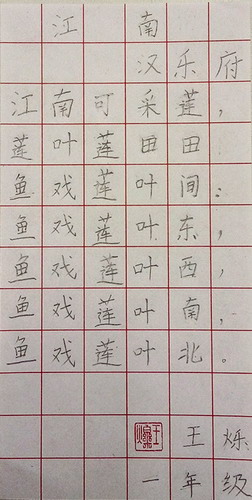 江南
汉乐府
江南可采莲，
莲叶莲田田
鱼戏莲叶间：
鱼戏莲叶东，
鱼戏莲叶西，
鱼戏莲叶南，
鱼戏莲叶北。
王烁
一年级